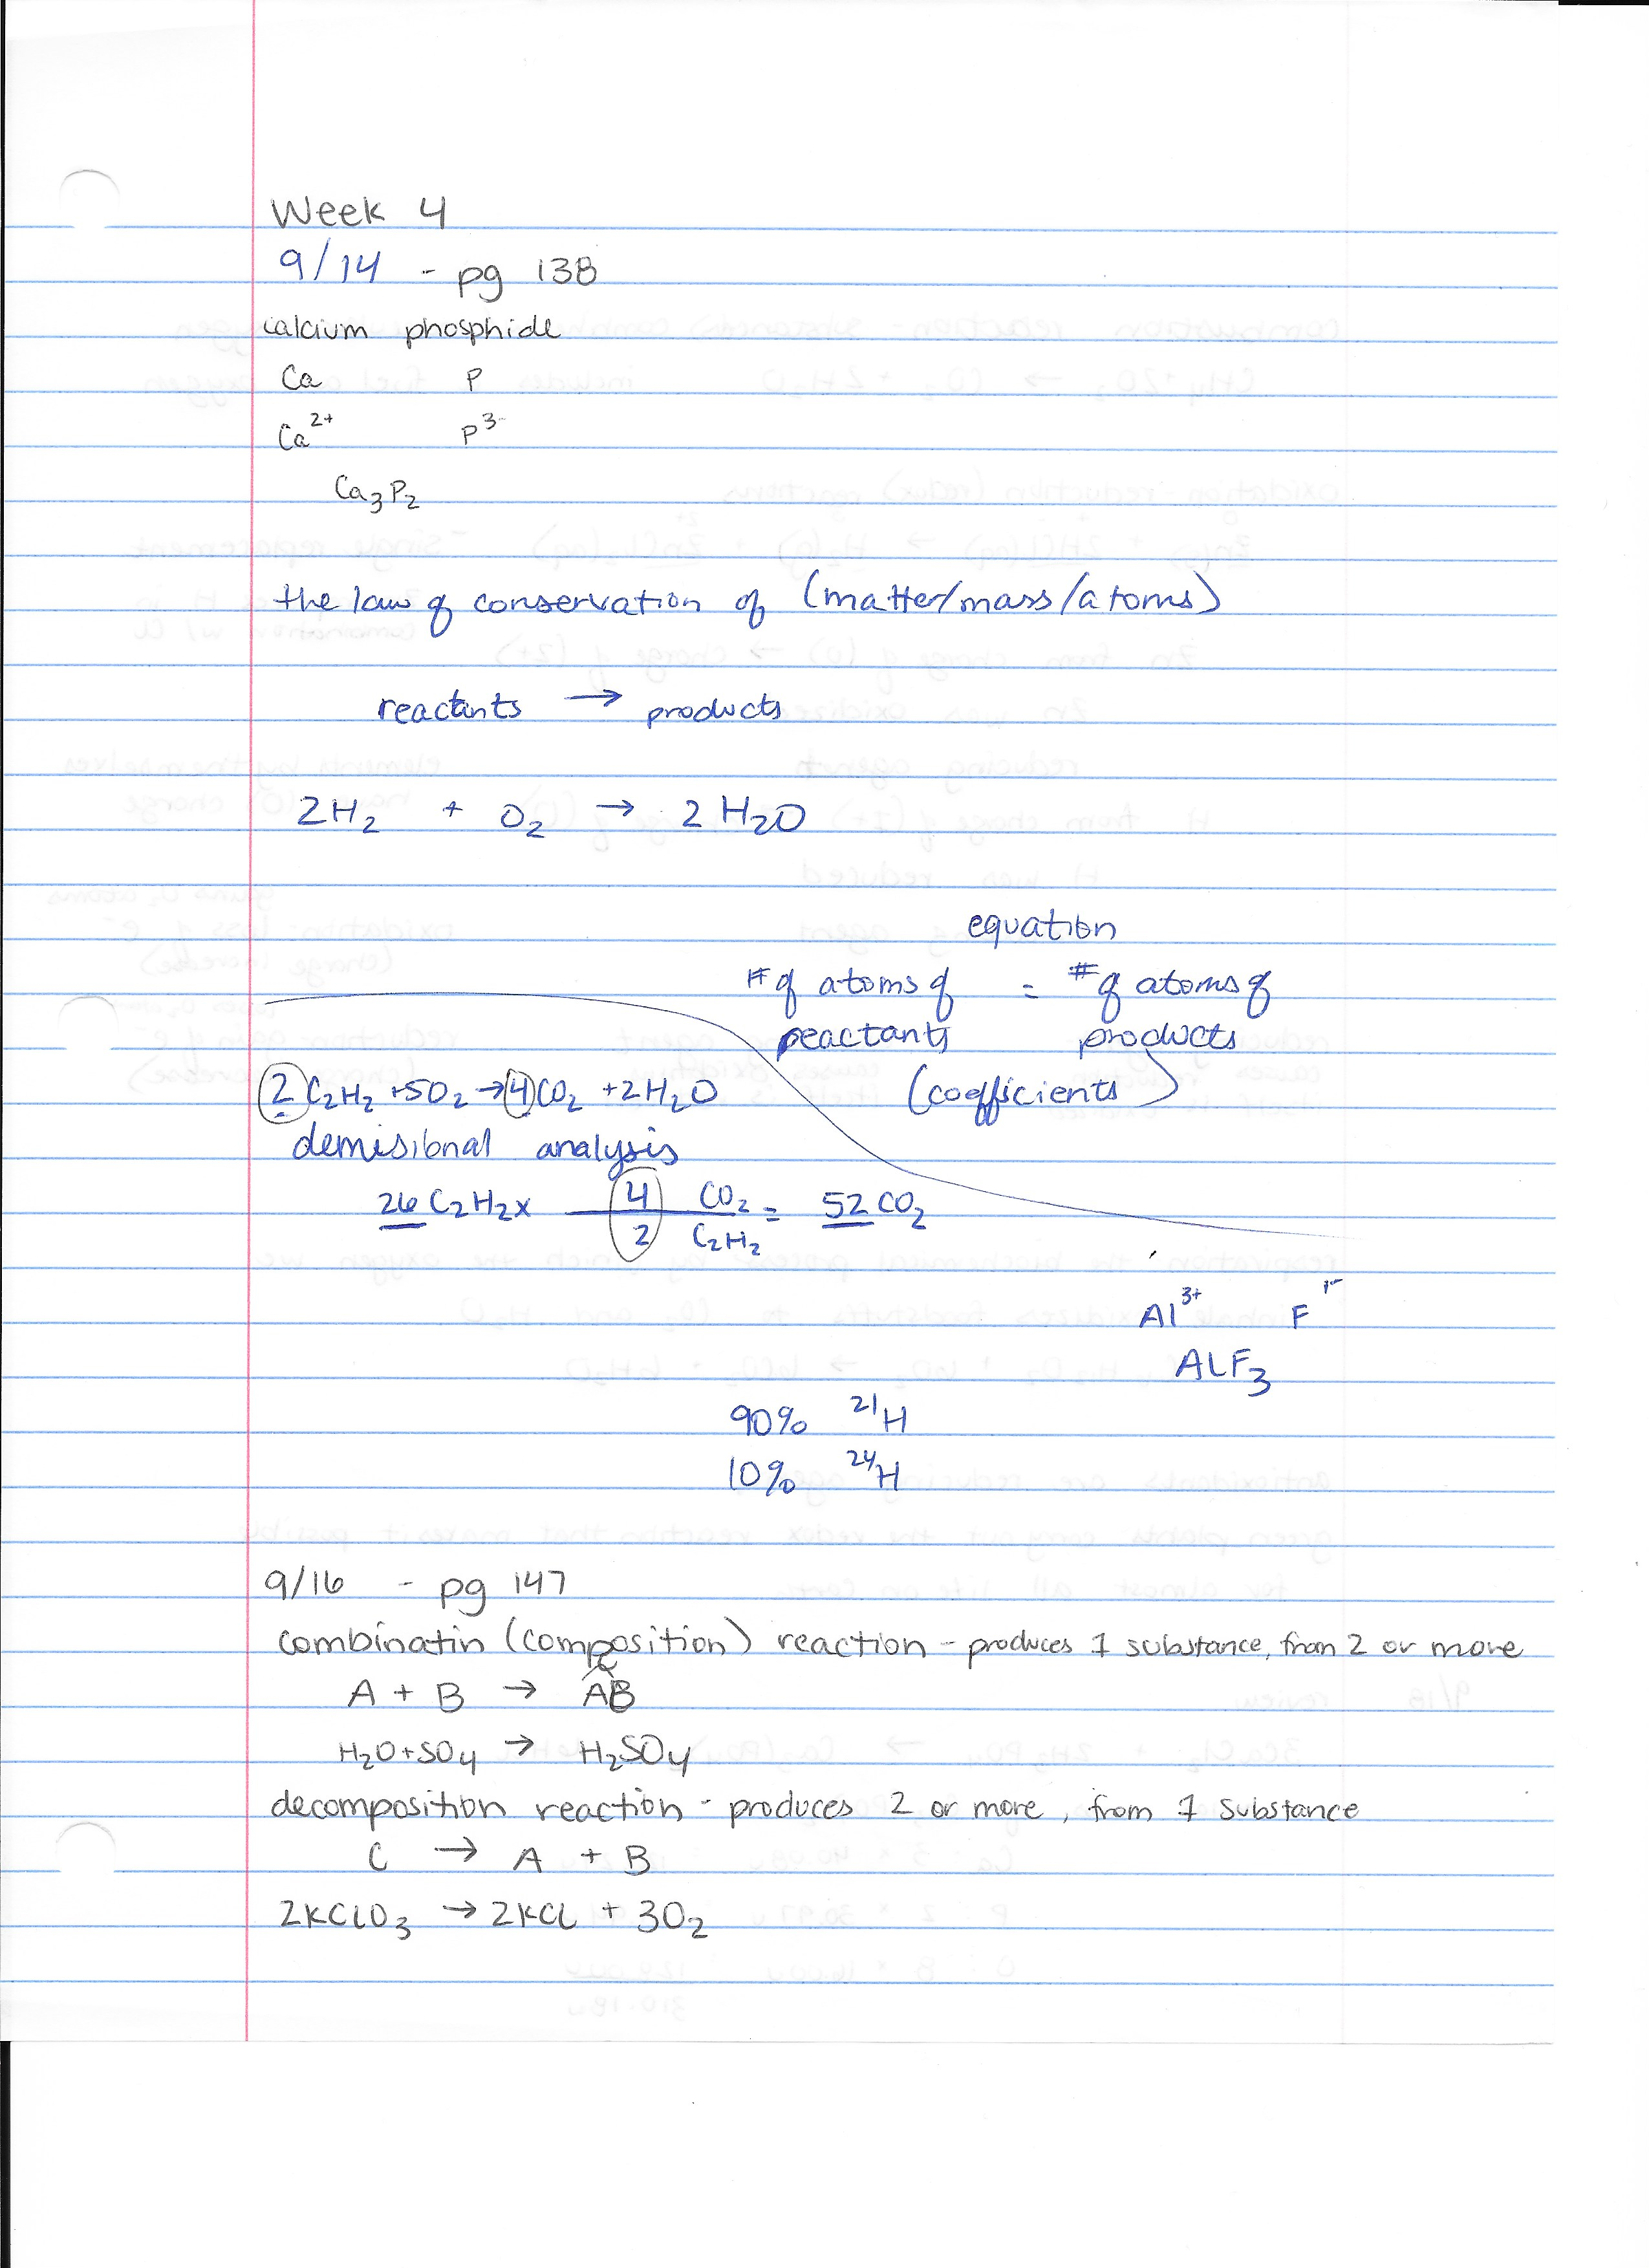 Week 4
9/14 - pg 138
calcium phosphide
Ca P
Ca²⁺ P³⁻
Ca₃P₂
the law of conservation of (matter/mass/atoms)
reactants → products
2H₂ + O₂ → 2 H₂O
equation
# of atoms of = # of atoms of
reactants products
(coefficients)
2 C₂H₂ + 5O₂ → 4 CO₂ + 2H₂O
demisional analysis
26 C₂H₂ x 4 CO₂ = 52 CO₂
2 C₂H₂
Al³⁺ F¹⁻
ALF₃
90% ²¹H
10% ²⁴H
9/16 - pg 147
combinatin (composition) reaction - produces 1 substance, from 2 or more
A + B → AB
H₂O + SO₄ → H₂SO₄
decomposition reaction - produces 2 or more, from 1 substance
C → A + B
2KClO₃ → 2KCl + 3O₂